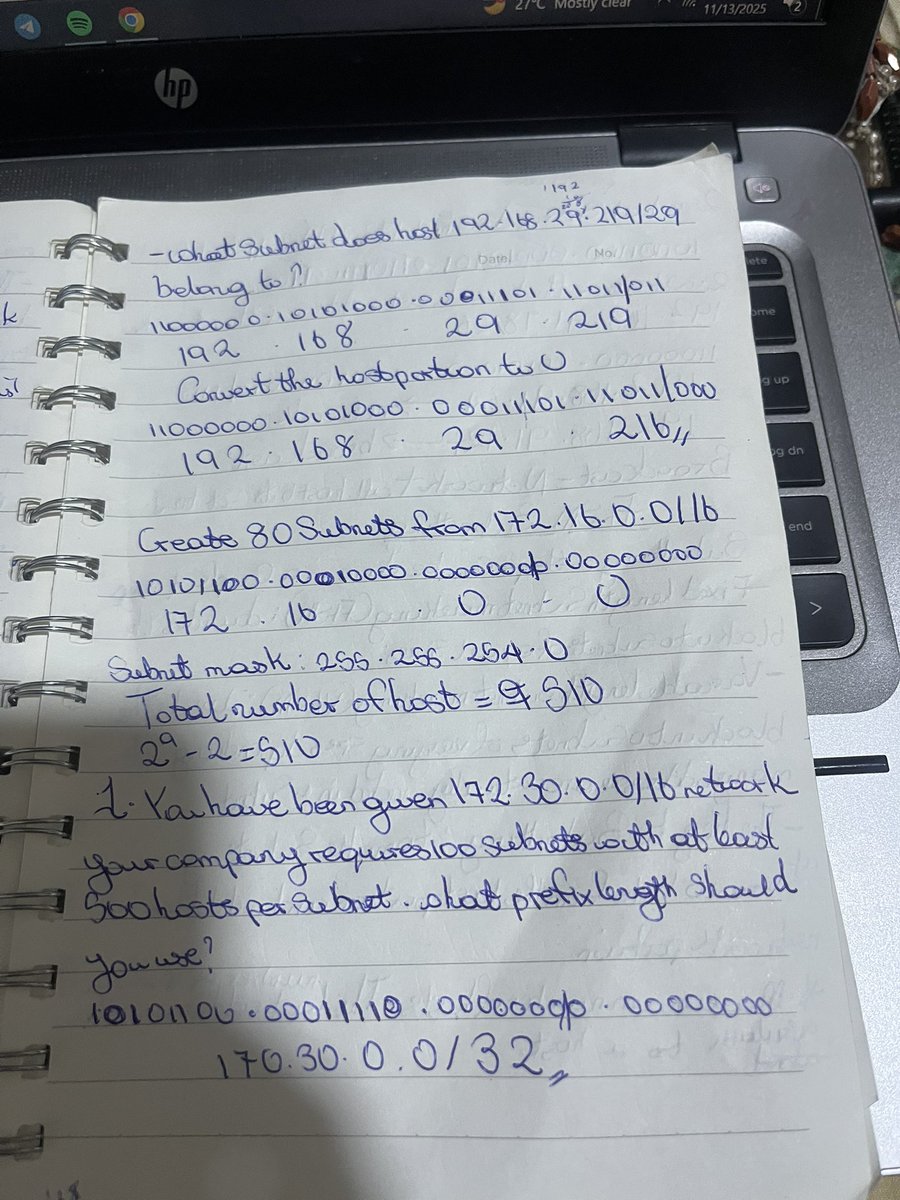 27°C Mostly clear
11/13/2025
2
hp
192
- what Subnet does host 192.168.29.219/29
Date/ No.
belong to?
11000000.10101000.00011101.11011/011
192 . 168 . 29 . 219
Convert the host portion to 0
11000000.10101000.00011101.11011/000
192 . 168 . 29 . 216,,
Create 80 Subnets from 172.16.0.0/16
10101100.00010000.0000000/0.00000000
172 . 16 . 0 - 0
Subnet mask: 255.255.254.0
Total number of host = 510
2^9 - 2 = 510
1. You have been given 172.30.0.0/16 network
your company requires 100 subnets with at least
500 hosts per subnet. what prefix length should
you use?
10101100.00011110.0000000/0.00000000
170.30.0.0/32,,
ete
ome
g up
pg dn
end
>
k